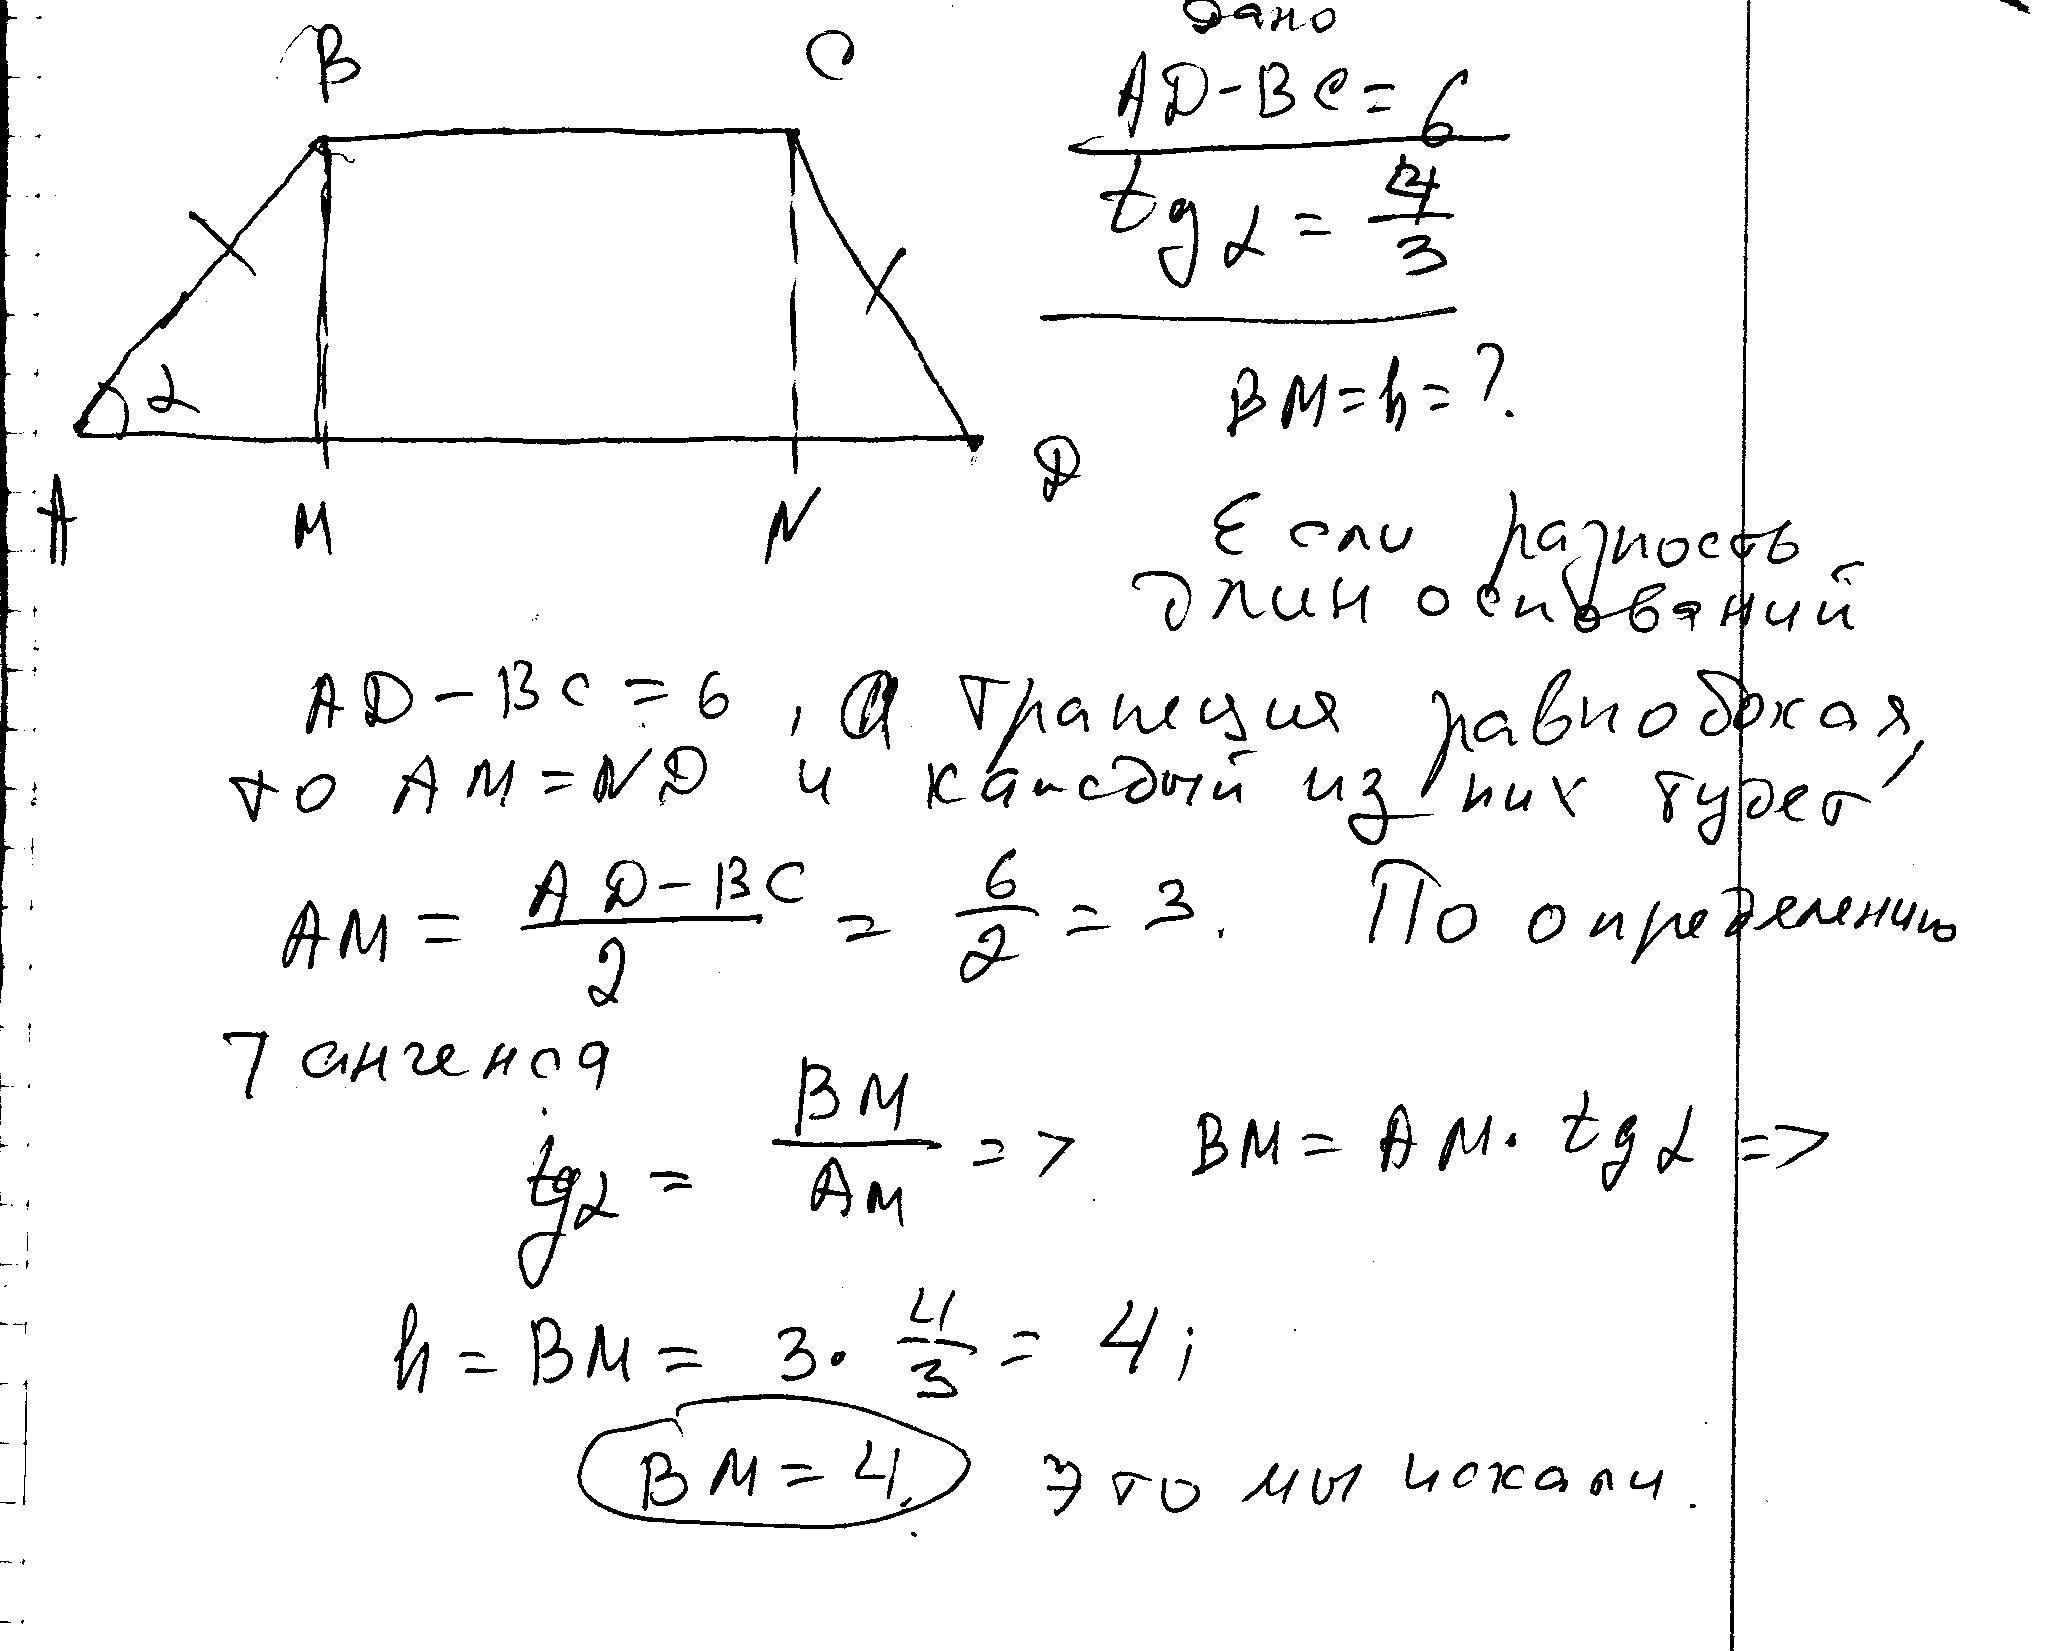 B
C
дано
AD-BC=6
tg α = 4/3
BM=h=?
α
A
M
N
D
Если разность
длин оснований
AD-BC=6, а трапеция равнобокая,
то AM=ND и каждый из них будет
AM = AD-BC/2 = 6/2 = 3. По определению
тангенса
tg α = BM/AM => BM = AM · tg α =>
h = BM = 3 · 4/3 = 4;
BM=4. это мы искали.